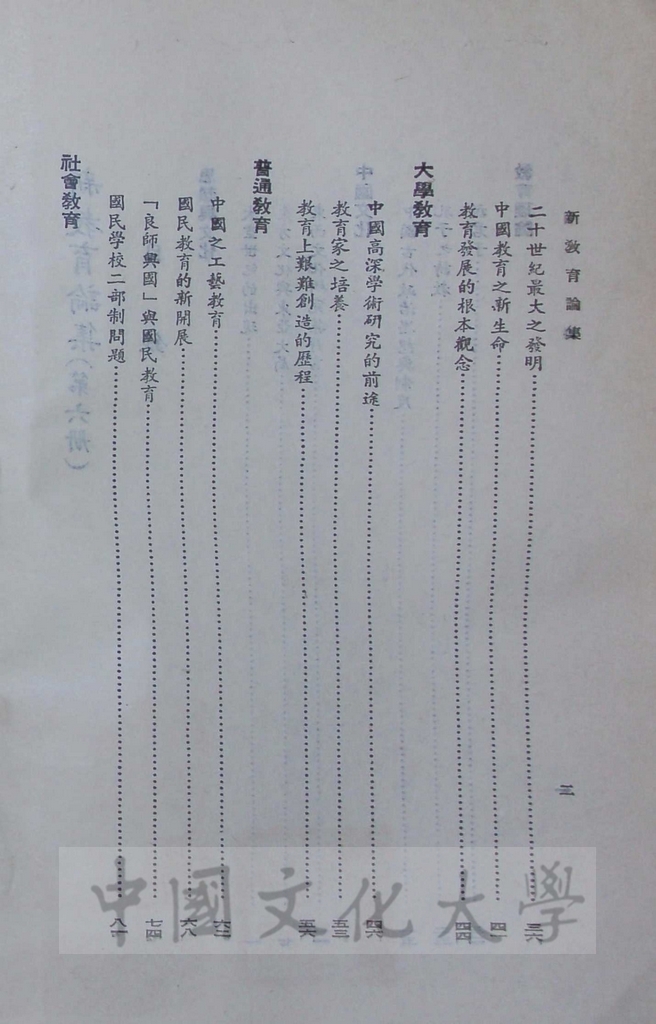 新教育論集
二十世紀最大之發明……三六
中國教育之新生命……四一
教育發展的根本觀念……四四
大學教育
中國高深學術研究的前途……四六
教育家之培養……五三
教育上艱難創造的歷程……五六
普通教育
中國之工藝教育……六二
國民教育的新開展……六八
「良師興國」與國民教育……七四
國民學校二部制問題……八一
社會教育
中國文化大學